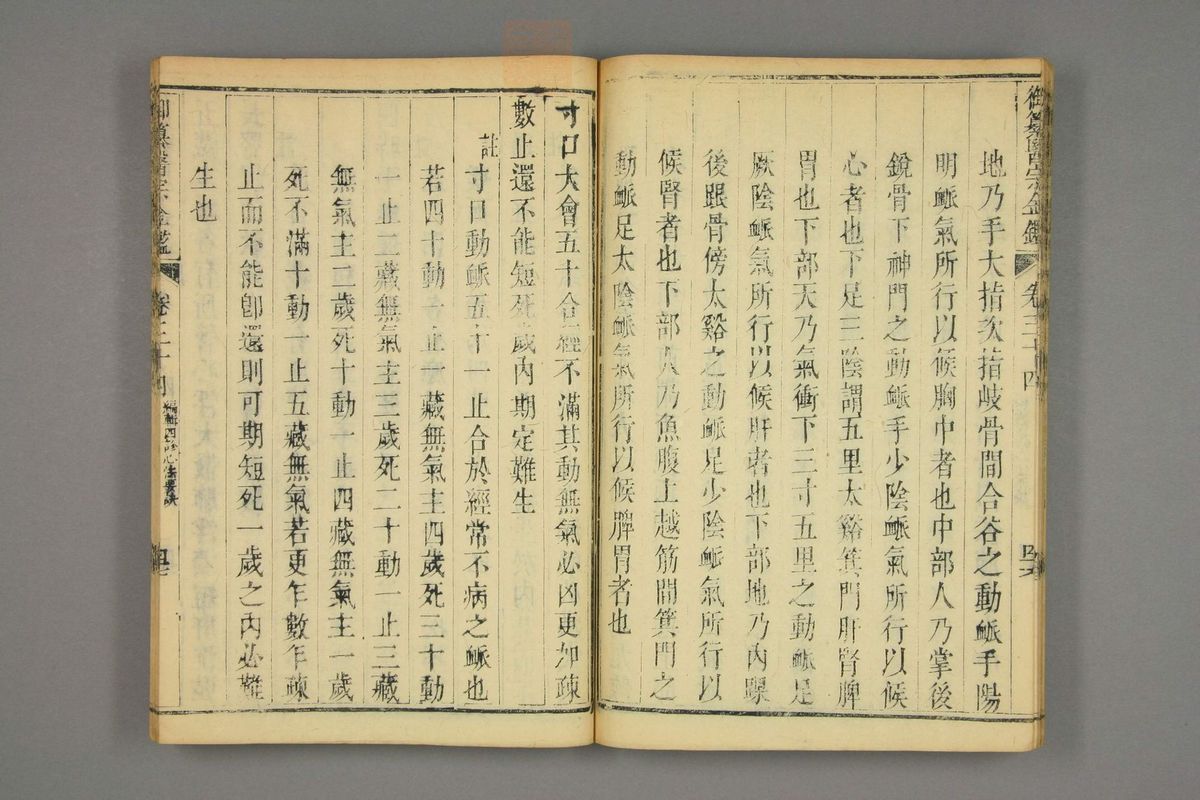 御纂醫宗金鑑 卷三十四
地乃手大指次指歧骨間合谷之動脈手陽
明脈氣所行以候胸中者也中部人乃掌後
銳骨下神門之動脈手少陰脈氣所行以候
心者也下足三陰謂五里太谿箕門肝腎脾
胃也下部天乃氣衝下三寸五里之動脈足
厥陰脈氣所行以候肝者也下部地乃內踝
後跟骨傍太谿之動脈足少陰脈氣所行以
候腎者也下部人乃魚腹上越筋間箕門之
動脈足太陰脈氣所行以候脾胃者也
寸口大會五十合經不滿其動無氣必凶更加疎
數止還不能短死歲內期定難生
註
寸口動脈五十一止合於經常不病之脈也
若四十動一止一藏無氣主四歲死三十動
一止二藏無氣主三歲死二十動一止三藏
無氣主二歲死十動一止四藏無氣主一歲
死不滿十動一止五藏無氣若更乍數乍疎
止而不能卽還則可期短死一歲之內必難
生也
御纂醫宗金鑑 卷三十四 編輯四診心法要訣